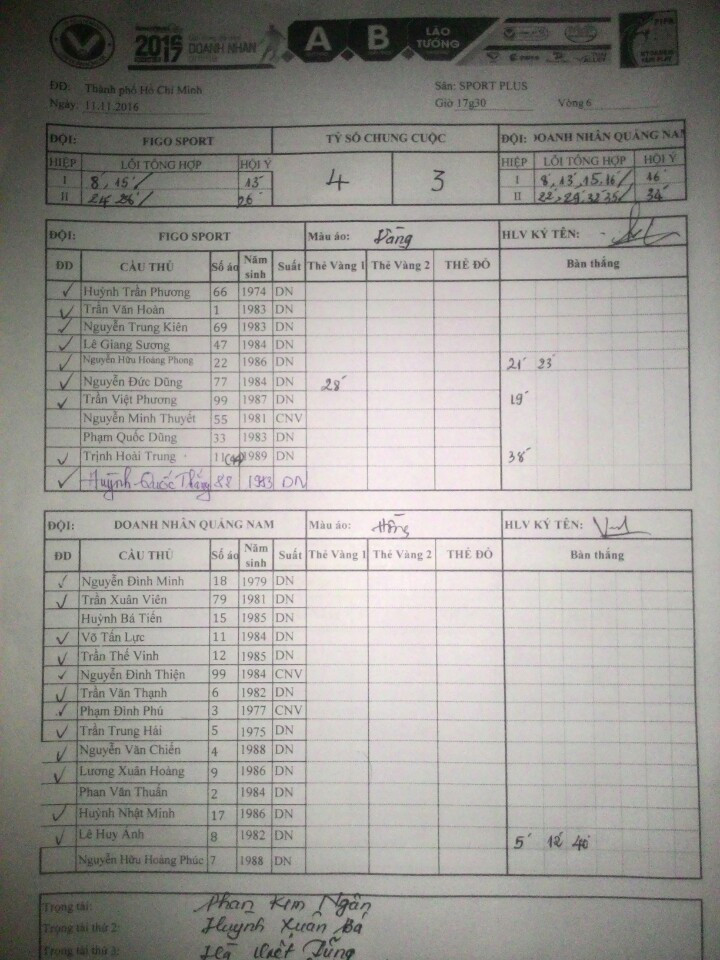 2016
2017
DOANH NHÂN
A B LÀO TƯỞNG
ĐĐ: Thành phố Hồ Chí Minh Sân: SPORT PLUS
Ngày: 11.11.2016 Giờ 17g30 Vòng 6
ĐỘI: FIGO SPORT TỶ SỐ CHUNG CUỘC ĐỘI: DOANH NHÂN QUẢNG NAM
HIỆP LỖI TỔNG HỢP HỘI Ý 4 3 HIỆP LỖI TỔNG HỢP HỘI Ý
I 8', 15' 13' I 8', 13', 15, 16' 16'
II 24' 26' 26' II 22', 29' 32' 35' 34'
ĐỘI: FIGO SPORT Màu áo: Vàng HLV KÝ TÊN:
ĐD CẦU THỦ Số áo Năm sinh Suất Thẻ Vàng 1 Thẻ Vàng 2 THẺ ĐỎ Bàn thắng
✓ Huỳnh Trần Phương 66 1974 DN
✓ Trần Văn Hoàn 1 1983 DN
✓ Nguyễn Trung Kiên 69 1983 DN
✓ Lê Giang Sương 47 1984 DN
✓ Nguyễn Hữu Hoàng Phong 22 1986 DN 21' 23'
✓ Nguyễn Đức Dũng 77 1984 DN 28'
✓ Trần Việt Phương 99 1987 DN 19'
Nguyễn Minh Thuyết 55 1981 CNV
Phạm Quốc Dũng 33 1983 DN
✓ Trịnh Hoài Trung 11 1989 DN 38'
✓ Huỳnh Quốc Thắng 88 1983 DN
ĐỘI: DOANH NHÂN QUẢNG NAM Màu áo: Hồng HLV KÝ TÊN:
ĐD CẦU THỦ Số áo Năm sinh Suất Thẻ Vàng 1 Thẻ Vàng 2 THẺ ĐỎ Bàn thắng
✓ Nguyễn Đình Minh 18 1979 DN
✓ Trần Xuân Viên 79 1981 DN
Huỳnh Bá Tiến 15 1985 DN
✓ Võ Tấn Lực 11 1984 DN
✓ Trần Thế Vinh 12 1985 DN
✓ Nguyễn Đình Thiện 99 1984 CNV
✓ Trần Văn Thạnh 6 1982 DN
✓ Phạm Đình Phú 3 1977 CNV
✓ Trần Trung Hải 5 1975 DN
✓ Nguyễn Văn Chiến 4 1988 DN
✓ Lương Xuân Hoàng 9 1986 DN
Phan Văn Thuần 2 1984 DN
✓ Huỳnh Nhật Minh 17 1986 DN
✓ Lê Huy Ánh 8 1982 DN 5' 12' 40'
Nguyễn Hữu Hoàng Phúc 7 1988 DN
Trọng tài: Phan Kim Ngân
Trọng tài thứ 2: Huỳnh Xuân Bá
Trọng tài thứ 3: Hà Dũng